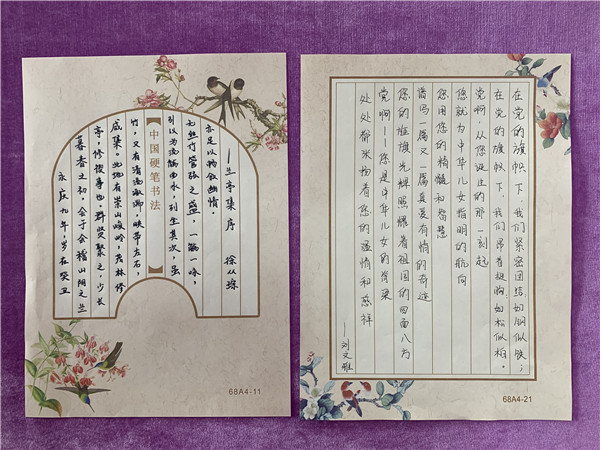 永庆九年,岁在癸丑
暮春之初,会于会稽山阴之兰
亭,修禊事也。群贤聚之,少长
咸集。此地有崇山峻岭,茂林修
竹,又有清流激湍,映带左右,
中国硬笔书法
引以为流觞曲水,列坐其次,虽
无丝竹管弦之盛,一觞一咏,
亦足以畅叙幽情。
——兰亭集序 徐从琼
68A4-11
在党的旗帜下,我们紧密团结,如钢似铁;
在党的旗帜下,我们昂首挺胸,如松似柏。
党啊,从您诞生的那一刻起
您就为中华儿女指明的航向
您用您的精髓和智慧
谱写一篇又一篇真爱有情的奇迹
您的旌旗光辉照耀着祖国的四面八方
党啊!——您是中华儿女的脊梁
处处都洋溢着您的温情和慈祥
——刘文雅
68A4-21